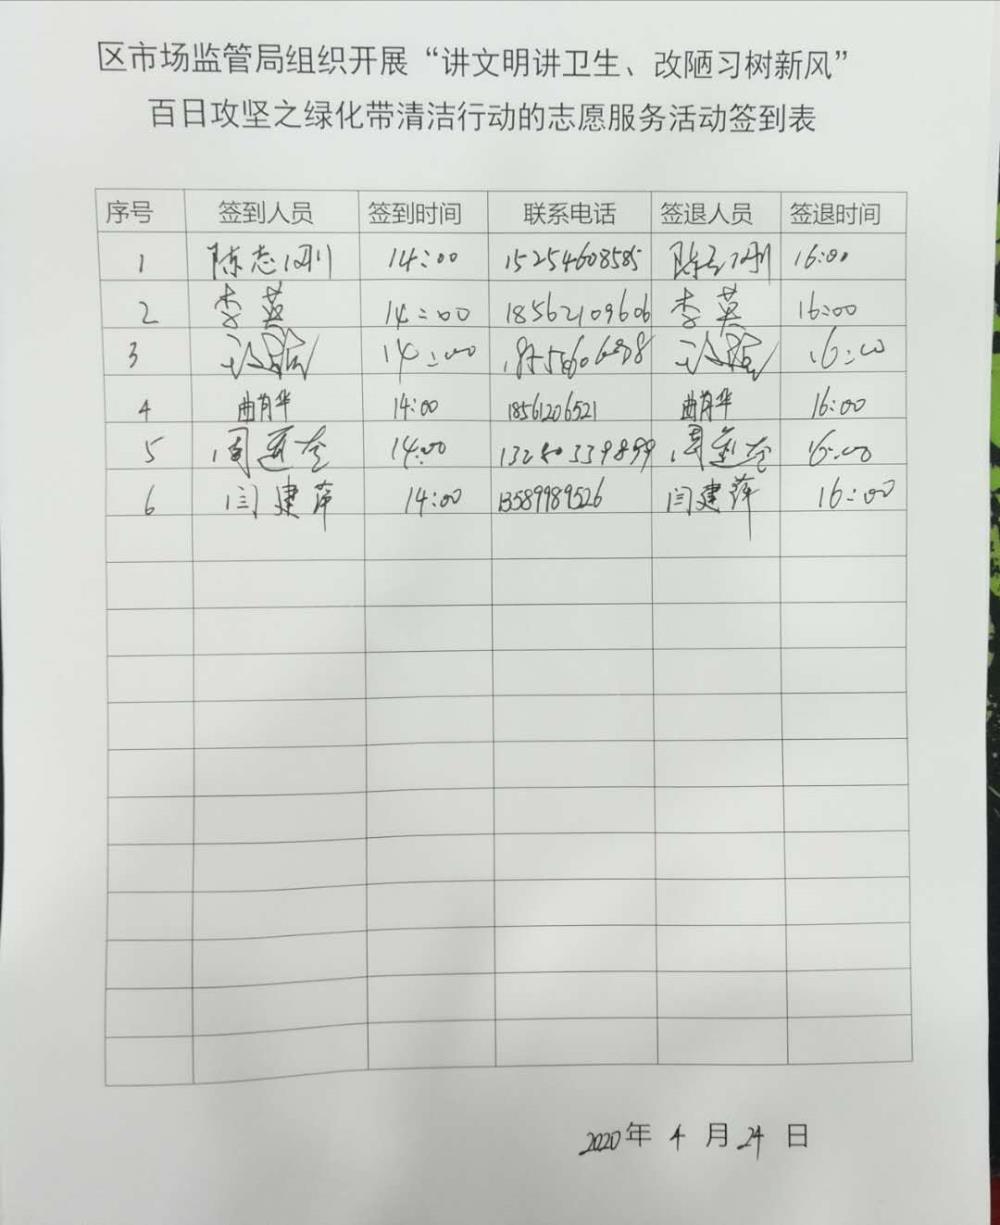 区市场监管局组织开展“讲文明讲卫生、改陋习树新风”
百日攻坚之绿化带清洁行动的志愿服务活动签到表
序号 签到人员 签到时间 联系电话 签退人员 签退时间
1 陈志刚 14:00 15254608585 陈志刚 16:00
2 李英 14:00 18562109606 李英 16:00
3 14:00 16:00
4 曲肖华 14:00 18561206521 曲肖华 16:00
5 周 14:00 周 16:00
6 闫建萍 14:00 13589989526 闫建萍 16:00
2020年 4 月 24 日